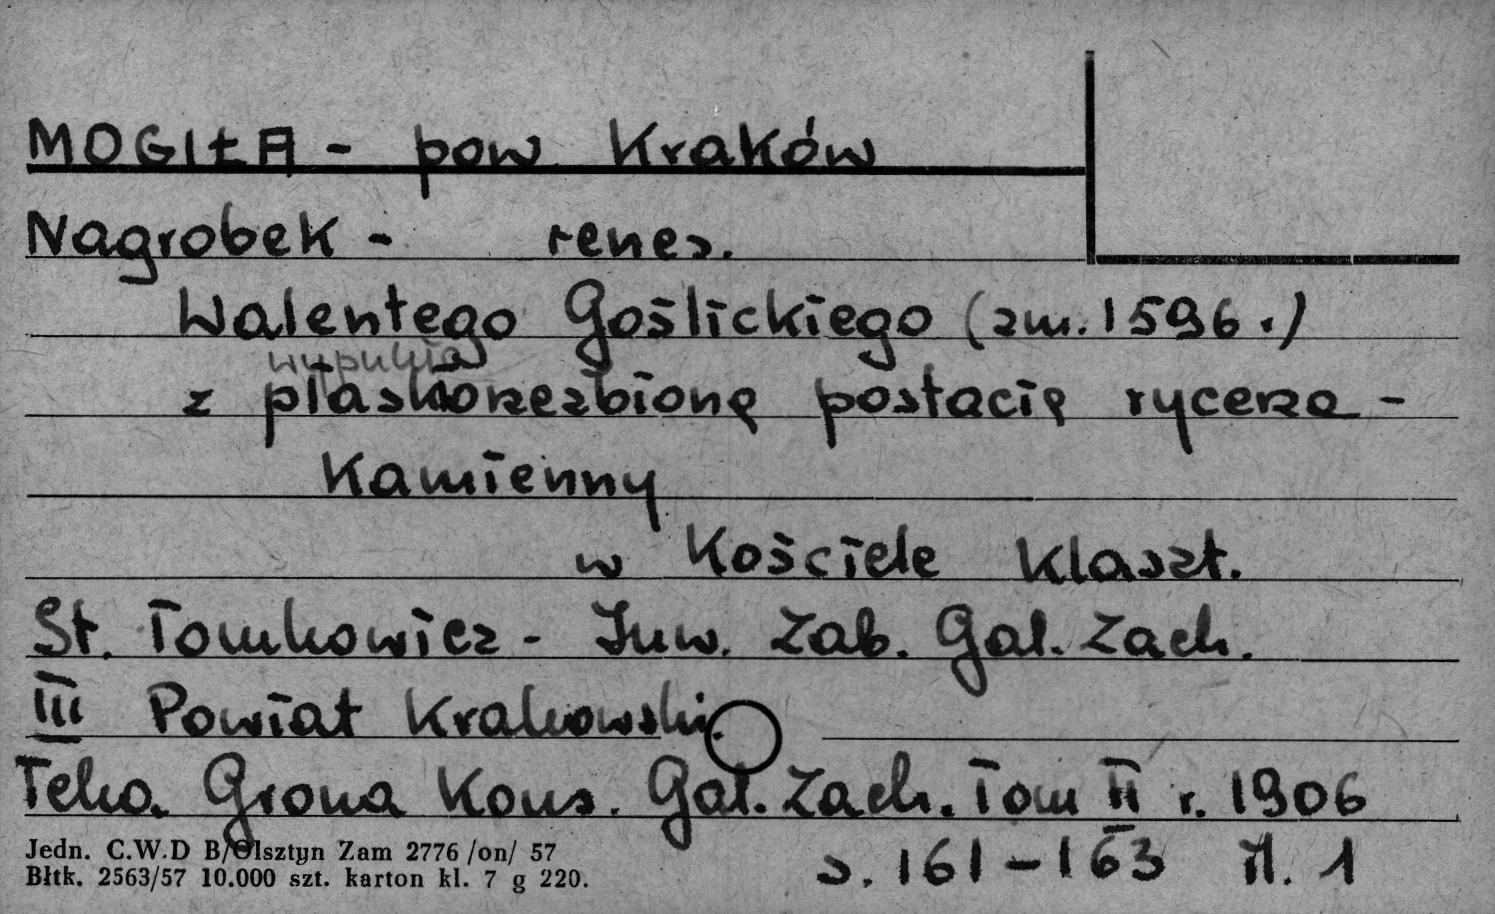 MOGIŁA - pow Kraków
Nagrobek - renes.
Walentego Goślickiego (zm. 1596 r.)
wypukłą
z płaskorzezbioną postacią rycerza -
Kamienny
w Kościele Klaszt.
St. Tomkowicz - Inw. Zab. Gal. Zach.
III Powiat Krakowski.
Teka Grona Kons. Gal. Zach. Tom II r. 1906
s. 161-163 il. 1
Jedn. C.W.D B/Olsztyn Zam 2776 /on/ 57
Błtk. 2563/57 10.000 szt. karton kl. 7 g 220.